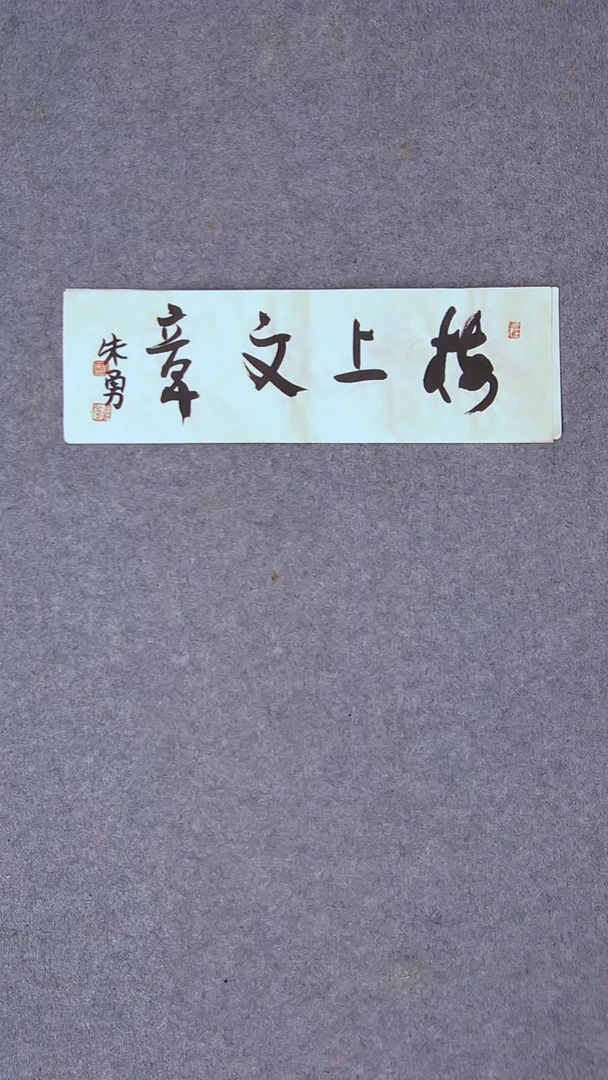 梅上文章
朱勇